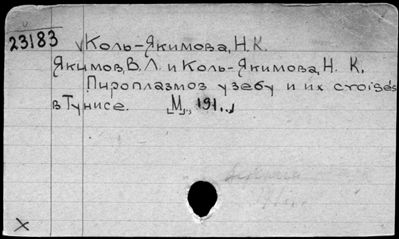 23183 √Коль-Якимова, Н.К.
Якимов, В.Л. и Коль-Якимова, Н. К.
Пироплазмоз у зебу и их croisés
в Тунисе. [М., 191..]
x